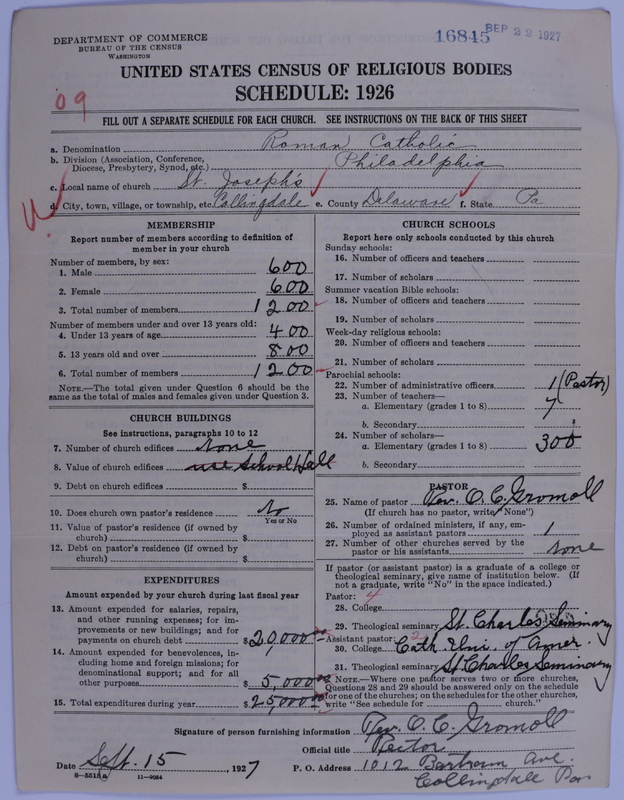 DEPARTMENT OF COMMERCE
BUREAU OF THE CENSUS
WASHINGTON
16845 SEP 22 1927
UNITED STATES CENSUS OF RELIGIOUS BODIES
SCHEDULE: 1926
09
FILL OUT A SEPARATE SCHEDULE FOR EACH CHURCH. SEE INSTRUCTIONS ON THE BACK OF THIS SHEET
a. Denomination Roman Catholic
b. Division (Association, Conference, Diocese, Presbytery, Synod, etc.) Philadelphia
c. Local name of church St. Joseph's
d. City, town, village, or township, etc. Collingdale e. County Delaware f. State Pa
MEMBERSHIP
Report number of members according to definition of
member in your church
Number of members, by sex:
1. Male 600
2. Female 600
3. Total number of members 1200
Number of members under and over 13 years old:
4. Under 13 years of age 400
5. 13 years old and over 800
6. Total number of members 1200
NOTE.—The total given under Question 6 should be the
same as the total of males and females given under Question 3.
CHURCH BUILDINGS
See instructions, paragraphs 10 to 12
7. Number of church edifices none
8. Value of church edifices use School Hall
9. Debt on church edifices $
10. Does church own pastor's residence No
Yes or No
11. Value of pastor's residence (if owned by
church) $
12. Debt on pastor's residence (if owned by
church) $
EXPENDITURES
Amount expended by your church during last fiscal year
13. Amount expended for salaries, repairs,
and other running expenses; for im-
provements or new buildings; and for
payments on church debt $20,000.00
14. Amount expended for benevolences, in-
cluding home and foreign missions; for
denominational support; and for all
other purposes $5,000.00
15. Total expenditures during year $25,000.00
CHURCH SCHOOLS
Report here only schools conducted by this church
Sunday schools:
16. Number of officers and teachers
17. Number of scholars
Summer vacation Bible schools:
18. Number of officers and teachers
19. Number of scholars
Week-day religious schools:
20. Number of officers and teachers
21. Number of scholars
Parochial schools:
22. Number of administrative officers 1 (Pastor)
23. Number of teachers—
a. Elementary (grades 1 to 8) 7
b. Secondary
24. Number of scholars—
a. Elementary (grades 1 to 8) 300
b. Secondary
PASTOR
25. Name of pastor Rev. O. C. Gromoll
(If church has no pastor, write "None")
26. Number of ordained ministers, if any, em-
ployed as assistant pastors 1
27. Number of other churches served by the
pastor or his assistants none
If pastor (or assistant pastor) is a graduate of a college or
theological seminary, give name of institution below. (If
not a graduate, write "No" in the space indicated.)
Pastor: 4
28. College
29. Theological seminary St. Charles Seminary
Assistant pastor: 2
30. College Cath. Uni. of Amer.
31. Theological seminary St Charles Seminary
NOTE.—Where one pastor serves two or more churches,
Questions 28 and 29 should be answered only on the schedule
for one of the churches; on the schedules for the other churches,
write "See schedule for ______ church."
Signature of person furnishing information Rev. O. C. Gromoll
Official title Rector
Date Sept. 15, 1927 P. O. Address 1012 Bartram Ave.
8—5518a 11—9084 Collingdale Pa